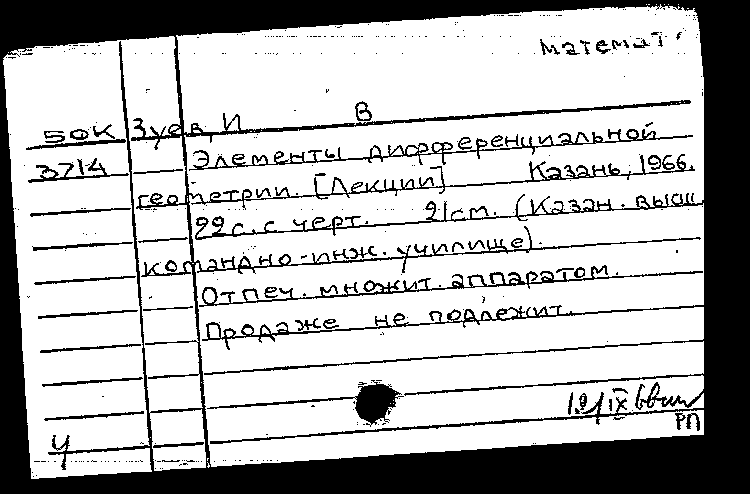 математ
50К Зуев, И В
3714 Элементы дифференциальной
геометрии. [Лекции] Казань, 1966.
22 с. с черт. 21 см. (Казан. высш.
командно-инж. училище).
Отпеч. множит. аппаратом.
Продаже не подлежит.
IX 66
РП
У